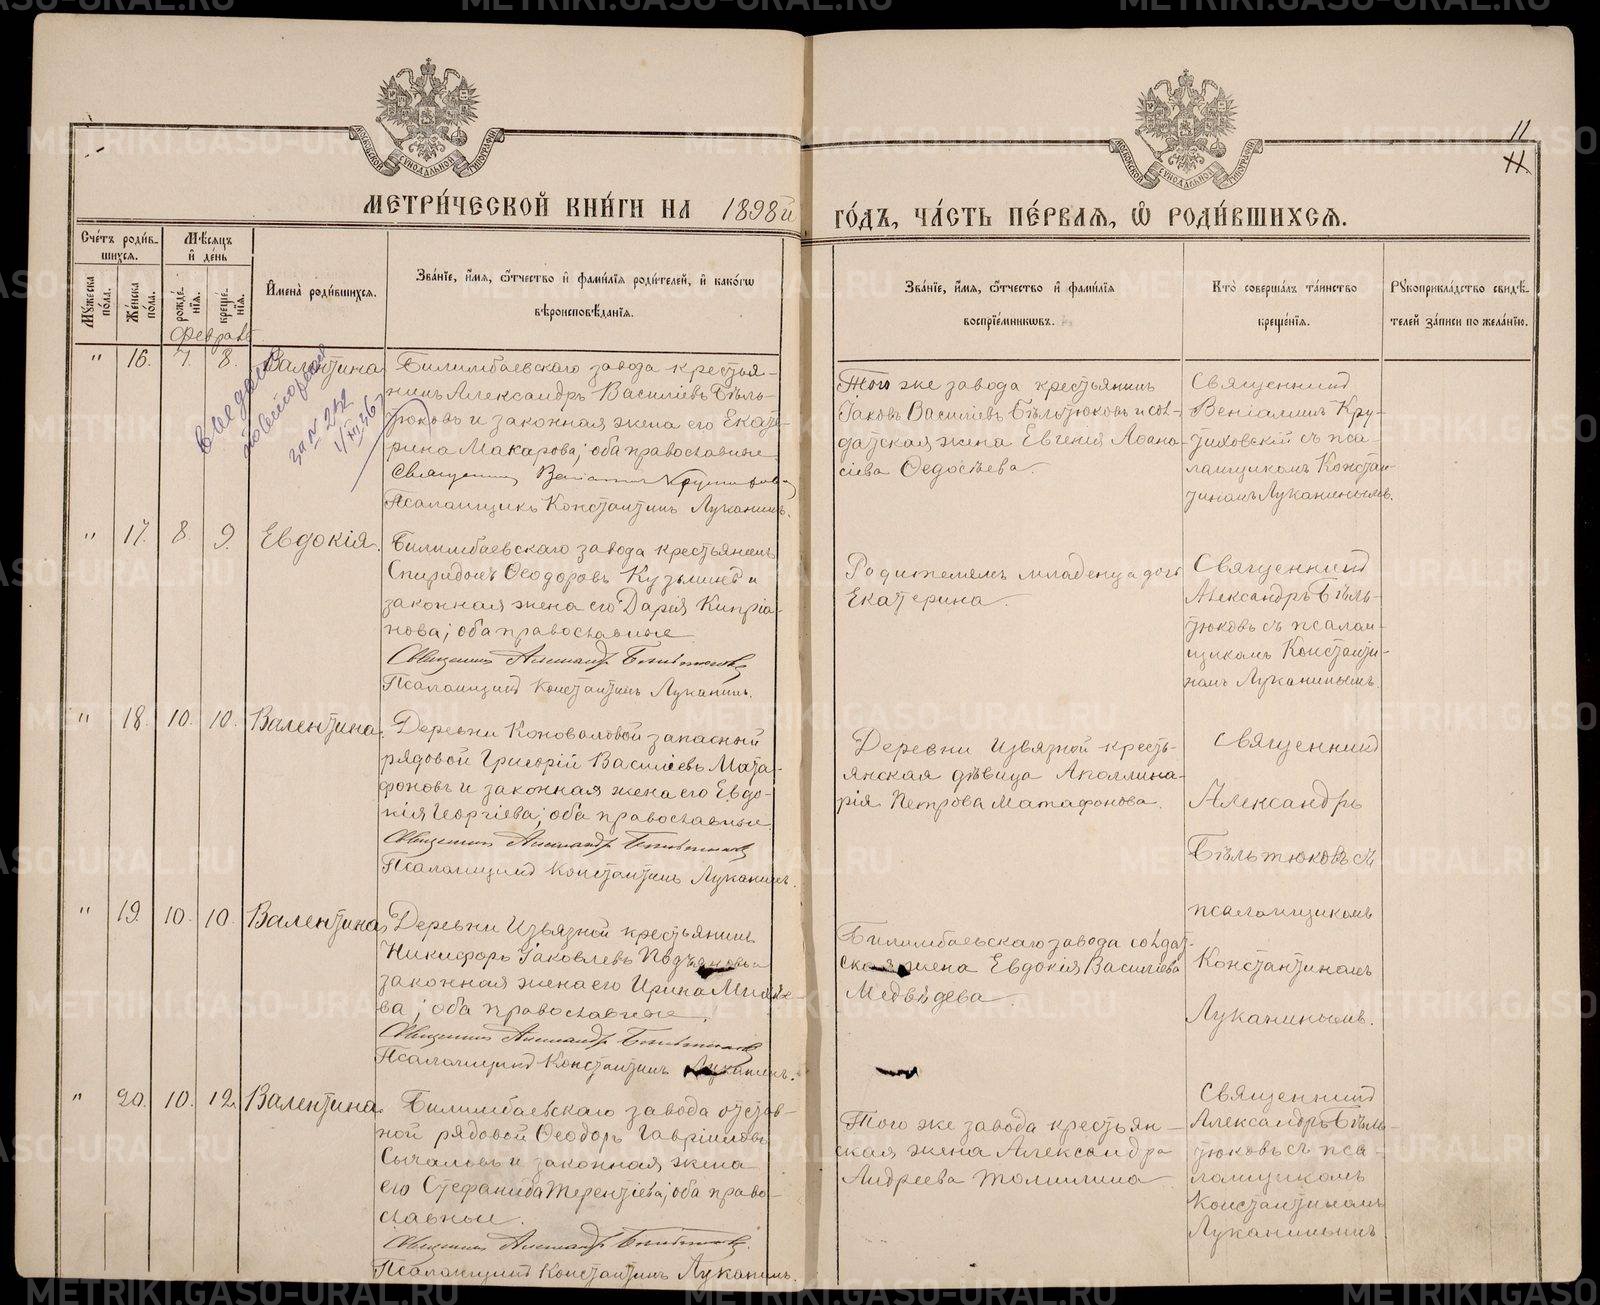 МЕТРИ́ЧЕСКОЙ КНИ́ГИ НА 1898й ГО́ДЪ, ЧА́СТЬ ПЕ́РВАЯ, Ѽ РОДИ́ВШИХСЯ.
11
Сче́тъ роди́в-
шихся.
Мѣ́сяцъ
и҆ де́нь
Му́жеска по́ла.
Же́нска по́ла.
рожде́-
нїя.
креще́-
нїя.
И҆мена̀ роди́вшихся.
Зва́нїе, и҆́мя, ѻ҆́тчество и҆ фами́лїя роди́телей, и҆ како́гѡ
вѣроисповѣ́данїя.
Зва́нїе, и҆́мя, ѻ҆́тчество и҆ фами́лїя
воспрїе́мниковъ.
Кто̀ соверша́лъ та́инство
креще́нїя.
Рꙋкоприкла́дство свидѣ́-
телей за́писи по жела́нїю.
Февраль
" 16. 7. 8. Валентина
за № 242
Билимбаевскаго завода крестья-
нинъ Александръ Василіевъ Бѣль-
тюковъ и законная жена его Екате-
рина Макарова; оба православные
Священникъ Веніаминъ
Псаломщикъ Константинъ Луканинъ.
Того же завода крестьянинъ
Іаковъ Василіевъ Бѣльтюковъ и сол-
датская жена Евгенія Аѳана-
сіева Ѳедосѣева.
Священникъ
Веніаминъ Кру-
тиховскій съ пса-
ломщикомъ Констан-
тиномъ Луканинымъ.
" 17. 8. 9. Евдокія.
Билимбаевскаго завода крестьянинъ
Спиридонъ Ѳеодоровъ Кузьминъ и
законная жена его Дарія Кипріа-
нова; оба православные
Священникъ Александръ Бѣльтюковъ
Псаломщикъ Константинъ Луканинъ.
Родителемъ младенца дочь
Екатерина.
Священникъ
Александръ Бѣль-
тюковъ съ псалом-
щикомъ Константи-
номъ Луканинымъ.
" 18. 10. 10. Валентина.
Деревни Коноваловой запасный
рядовой Григорій Василіевъ Мата-
фоновъ и законная жена его Евдо-
кія Георгіева; оба православные
Священникъ Александръ Бѣльтюковъ
Псаломщикъ Константинъ Луканинъ.
Деревни Извязной кресть-
янская дѣвица Аполлина-
рія Петрова Матафонова.
Священникъ
Александръ
Бѣльтюковъ съ
псаломщикомъ
Константиномъ
Луканинымъ.
" 19. 10. 10. Валентина
Деревни Извязной крестьянинъ
Никифоръ Іаковлевъ
законная жена его Ирина
ва; оба православные.
Священникъ Александръ Бѣльтюковъ
Псаломщикъ Константинъ Луканинъ.
Билимбаевскаго завода солдат-
ская жена Евдокія Василіева
Медвѣдева.
" 20. 10. 12. Валентина.
Билимбаевскаго завода отстав-
ной рядовой Ѳеодоръ Гавріиловъ
Сычаловъ и законная жена
его Стефанида Терентіева; оба право-
славные.
Священникъ Александръ Бѣльтюковъ.
Псаломщикъ Константинъ Луканинъ.
Того же завода крестьян-
ская жена Александра
Андреева Томилина
Священникъ
Александръ Бѣль-
тюковъ съ пса-
ломщикомъ
Константиномъ
Луканинымъ.
METRIKI.GASO-URAL.RU